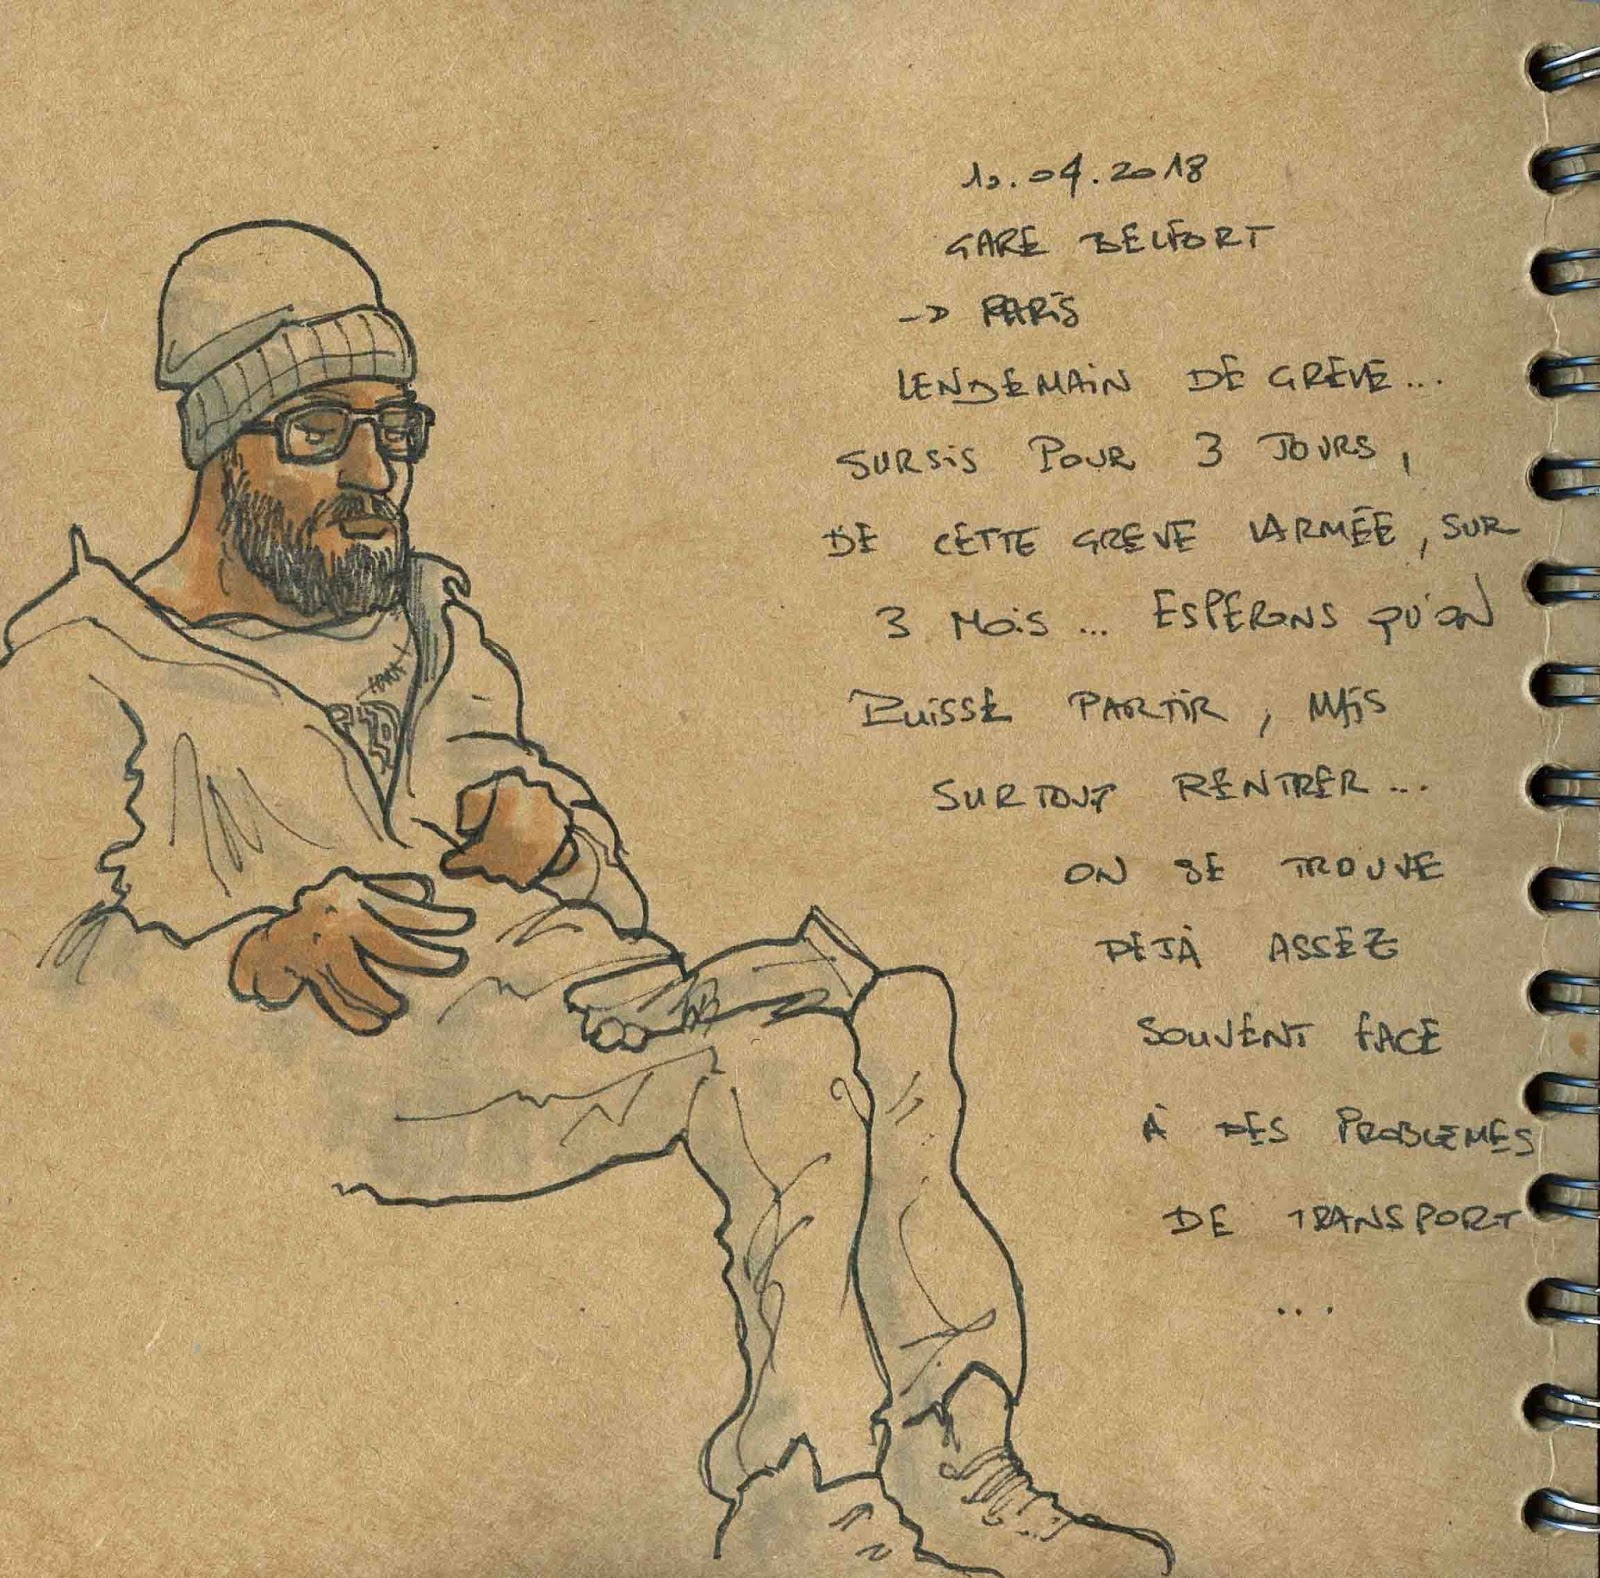 10.04.2018
GARE BELFORT
-> PARIS
LENDEMAIN DE GRÈVE...
SURSIS POUR 3 JOURS,
DE CETTE GRÈVE LARMÉE, SUR
3 MOIS... ESPERONS QU'ON
PUISSE PARTIR, MAIS
SURTOUT RENTRER...
ON SE TROUVE
DEJÀ ASSEZ
SOUVENT FACE
À DES PROBLEMES
DE TRANSPORT
...